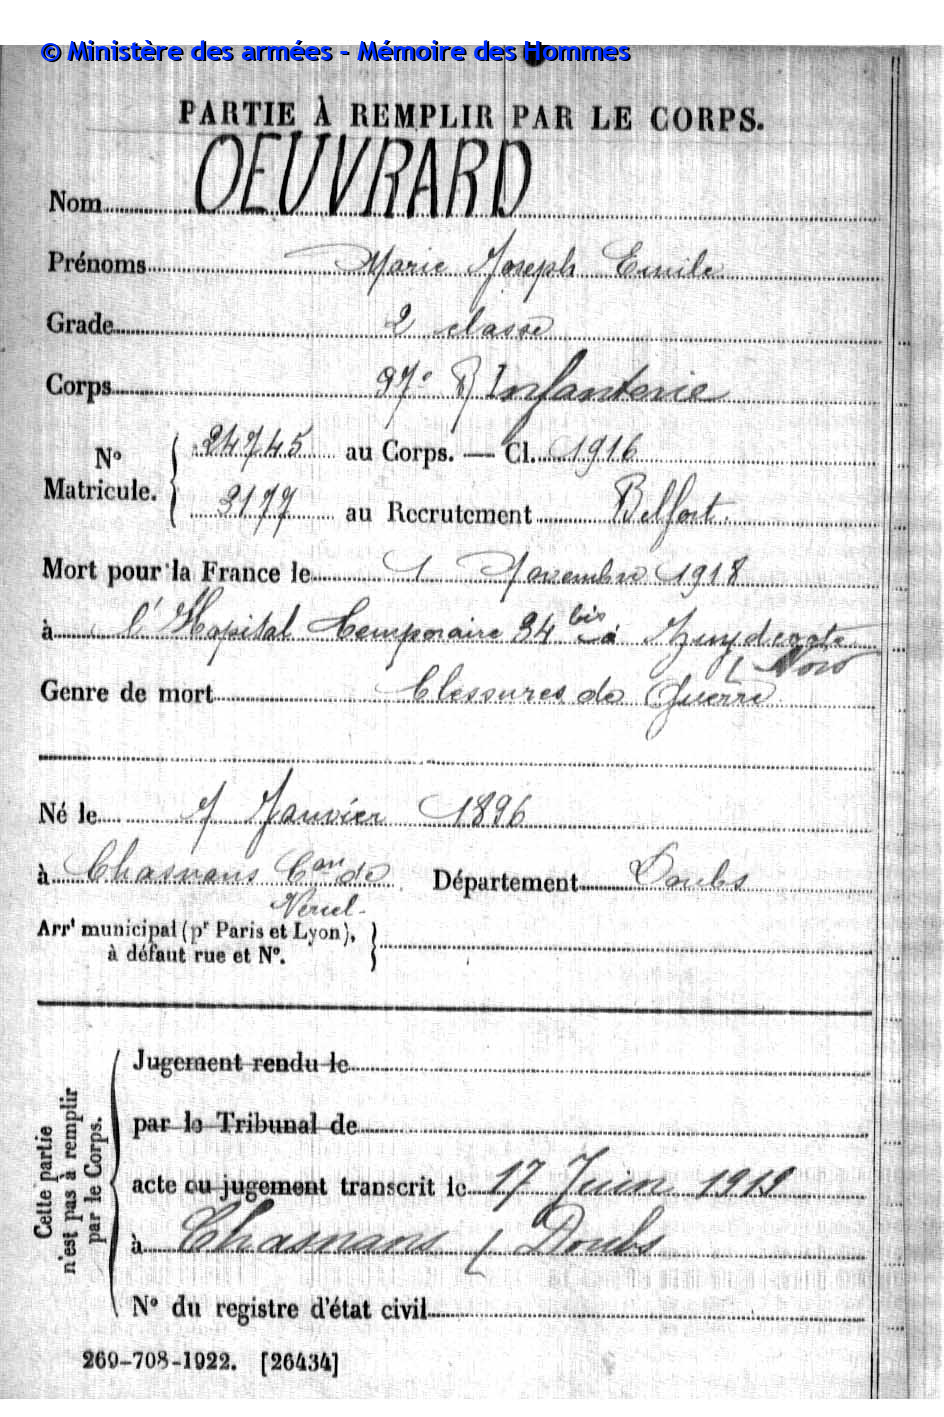 © Ministère des armées - Mémoire des Hommes
PARTIE À REMPLIR PAR LE CORPS.
Nom OEUVRARD
Prénoms Marie Joseph Emile
Grade 2 classe
Corps 97e R Infanterie
N° Matricule. { 24745 au Corps. — Cl. 1916
3177 au Recrutement Belfort.
Mort pour la France le 1 Novembre 1918
à l'Hopital temporaire 34 bis à Zuydcoote
( Nord
Genre de mort blessures de Guerre
Né le 7 Janvier 1896
à Chasnans Can de Département Doubs
Vercel
Arrt municipal (pr Paris et Lyon),
à défaut rue et N°.
Cette partie
n'est pas à remplir
par le Corps.
Jugement rendu le
par le Tribunal de
acte ou jugement transcrit le 17 Juin 1919
à Chasnans ( Doubs
N° du registre d'état civil
269-708-1922. [26434]